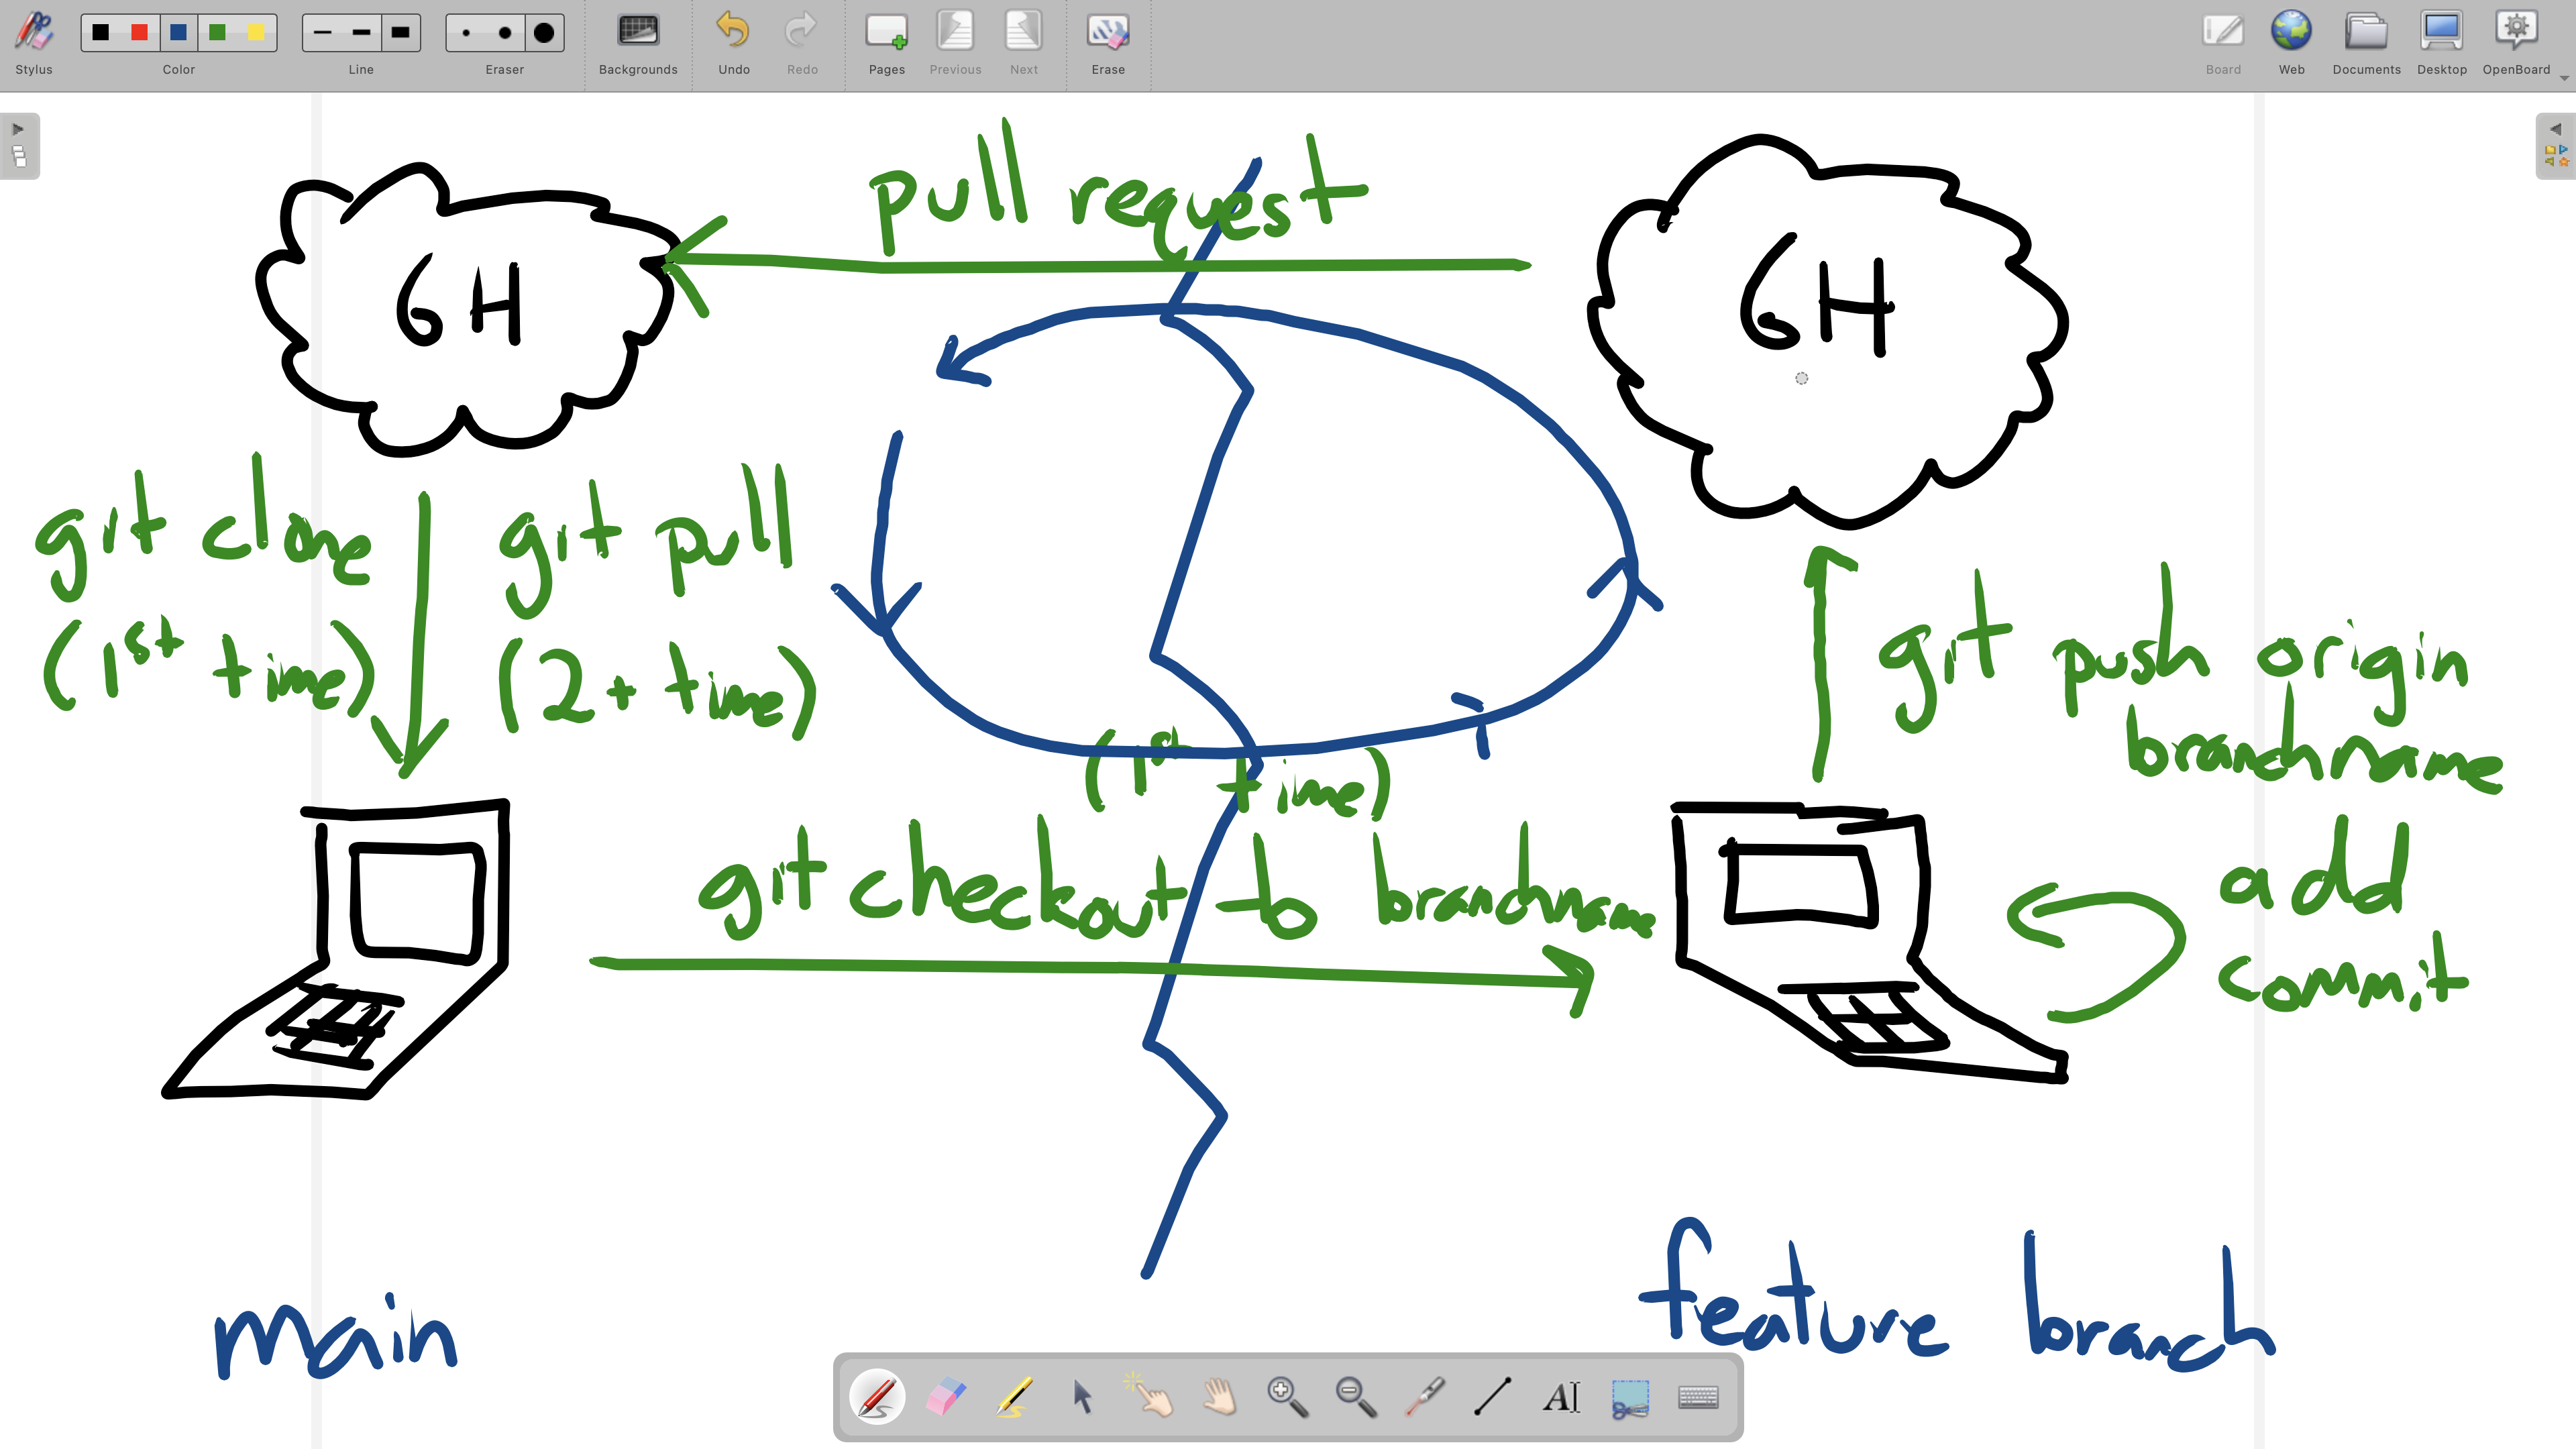 Stylus
Color
Line
Eraser
Backgrounds
Undo
Redo
Pages
Previous
Next
Erase
Board
Web
Documents
Desktop
OpenBoard
pull request
GH
GH
git clone
(1st time)
git pull
(2+ time)
git push origin
branchname
(1st time)
git checkout -b branchname
add
commit
main
feature branch
AI